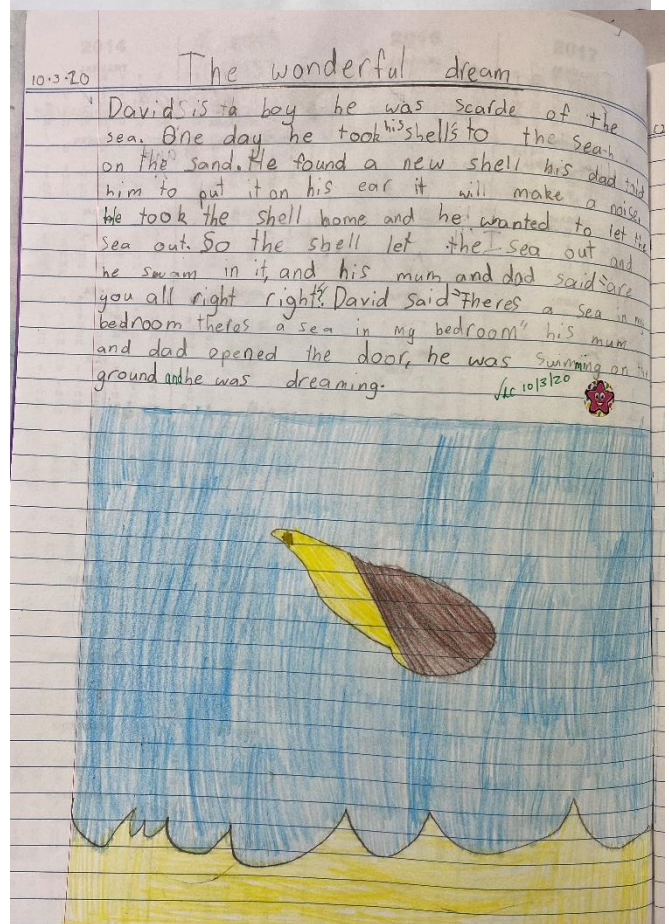 The wonderful dream
10.3.20
Davids is a boy he was scarde of the
sea. One day he took his shells to the sea
on the sand. He found a new shell his dad told
him to put it on his ear it will make a noise.
He took the shell home and he wanted to let the
sea out. So the shell let the sea out and
he swam in it, and his mum and dad said "are
you all right right"? David said "Theres a sea in my
bedroom theres a sea in my bedroom" his mum
and dad opened the door, he was summing on the
ground and he was dreaming.
10/3/20